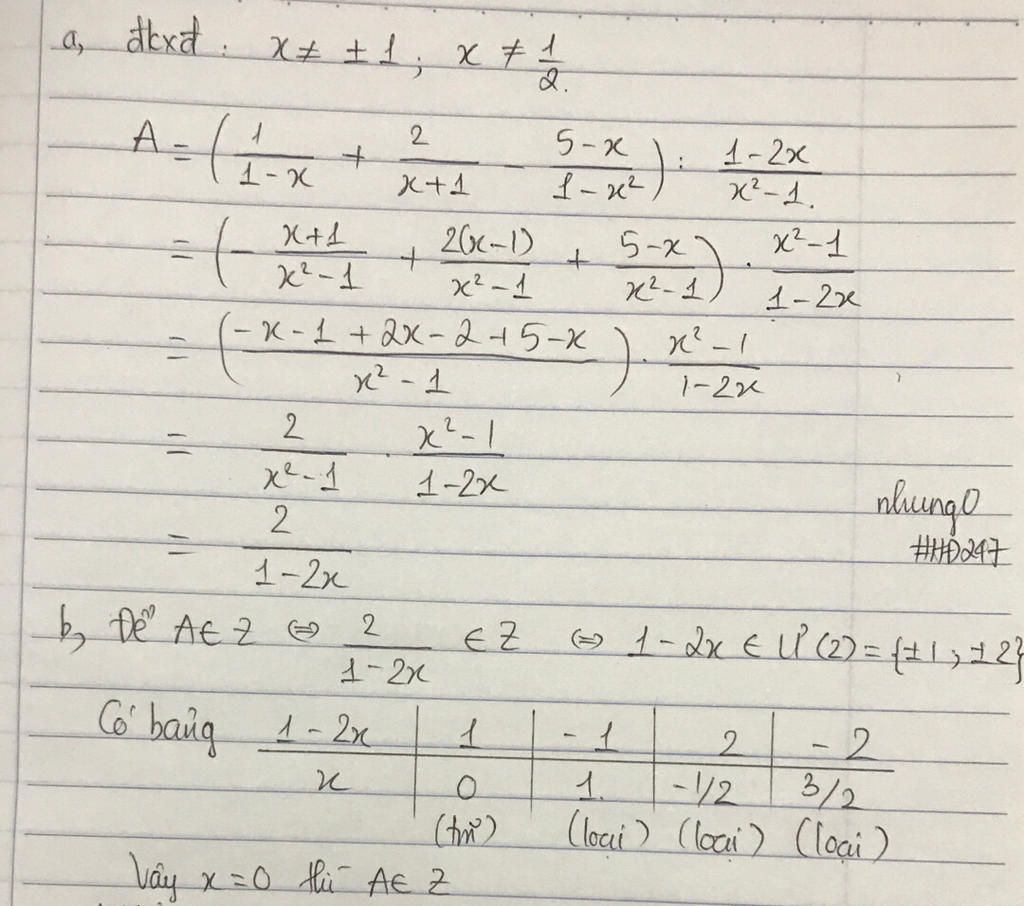 a, đkxđ : x ≠ ± 1 ; x ≠ 1/2.
A = (1/(1-x) + 2/(x+1) - (5-x)/(1-x²)) : (1-2x)/(x²-1).
= (- (x+1)/(x²-1) + 2(x-1)/(x²-1) + (5-x)/(x²-1)) . (x²-1)/(1-2x)
= ((-x-1+2x-2+5-x)/(x²-1)) . (x²-1)/(1-2x)
= 2/(x²-1) . (x²-1)/(1-2x)
nhung0
= 2/(1-2x)
#HĐ247
b, Để A ∈ Z ⇔ 2/(1-2x) ∈ Z ⇔ 1-2x ∈ Ư(2) = {±1; ±2}
Có bảng 1-2x | 1 | -1 | 2 | -2
x | 0 | 1. | -1/2 | 3/2
(tm) (loại) (loại) (loại)
Vậy x = 0 thì A ∈ Z